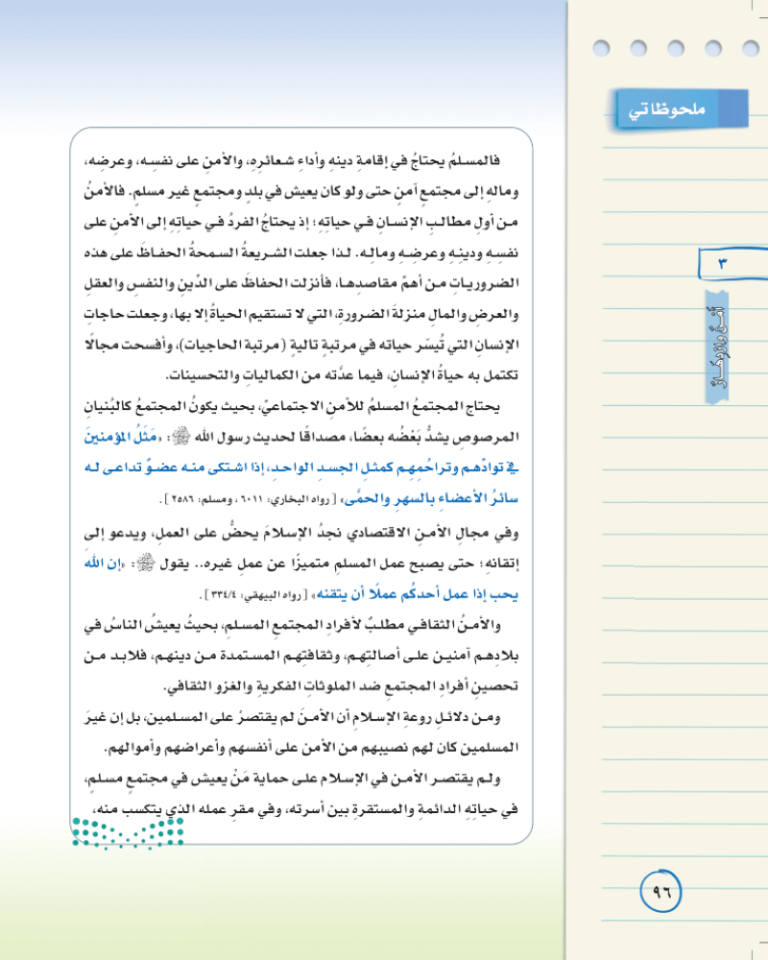 ملحوظاتي
٣
أمنٌ وازدهارٌ
فالمسلمُ يحتاجُ في إقامةِ دينهِ وأداءِ شعائرِهِ، والأمنِ على نفسِه، وعرضِه،
ومالهِ إلى مجتمعٍ آمنٍ حتى ولو كان يعيش في بلدٍ ومجتمعٍ غير مسلمٍ. فالأمنُ
من أولِ مطالبِ الإنسانِ في حياتِهِ؛ إذ يحتاجُ الفردُ في حياتِهِ إلى الأمنِ على
نفسِهِ ودينِهِ وعرضِهِ ومالِه. لذا جعلت الشريعةُ السمحةُ الحفاظَ على هذه
الضرورياتِ من أهمِّ مقاصدِها، فأنزلت الحفاظَ على الدِّينِ والنفسِ والعقلِ
والعرضِ والمالِ منزلةَ الضرورةِ، التي لا تستقيم الحياةُ إلا بها، وجعلت حاجاتِ
الإنسانِ التي تُيسِّر حياته في مرتبةٍ تاليةٍ (مرتبة الحاجيات)، وأفسحت مجالًا
تكتمل به حياةُ الإنسانِ، فيما عدَّته من الكمالياتِ والتحسينات.
يحتاج المجتمعُ المسلمُ للأمنِ الاجتماعيِّ، بحيث يكونُ المجتمعُ كالبُنيانِ
المرصوصِ يشدُّ بَعْضُه بعضًا، مصداقًا لحديث رسول الله ﷺ: «مَثَلُ المؤمنينَ
في توادِّهم وتراحُمِهِم كمثلِ الجسدِ الواحدِ، إذا اشتكى منه عضوٌ تداعى له
سائرُ الأعضاءِ بالسهرِ والحمَّى» [رواه البخاري: ٦٠١١، ومسلم: ٢٥٨٦].
وفي مجالِ الأمنِ الاقتصادي نجدُ الإسلامَ يحضُّ على العملِ، ويدعو إلى
إتقانهِ؛ حتى يصبح عمل المسلمِ متميزًا عن عملِ غيره.. يقول ﷺ: «إن اللهَ
يحب إذا عمل أحدكُم عملًا أن يتقنه» [رواه البيهقي: ٣٣٤/٤].
والأمنُ الثقافي مطلبٌ لأفرادِ المجتمعِ المسلمِ، بحيثُ يعيشُ الناسُ في
بلادِهم آمنين على أصالتِهم، وثقافتِهم المستمدة من دينهم، فلابد من
تحصينِ أفرادِ المجتمعِ ضد الملوثاتِ الفكريةِ والغزو الثقافي.
ومن دلائلِ روعةِ الإسلامِ أن الأمنَ لم يقتصرْ على المسلمين، بل إن غيرَ
المسلمين كان لهم نصيبهم من الأمن على أنفسهم وأعراضهم وأموالهم.
ولم يقتصر الأمن في الإسلام على حماية مَنْ يعيش في مجتمعٍ مسلمٍ،
في حياتِهِ الدائمةِ والمستقرةِ بين أسرته، وفي مقرِ عمله الذي يتكسب منه،
٩٦